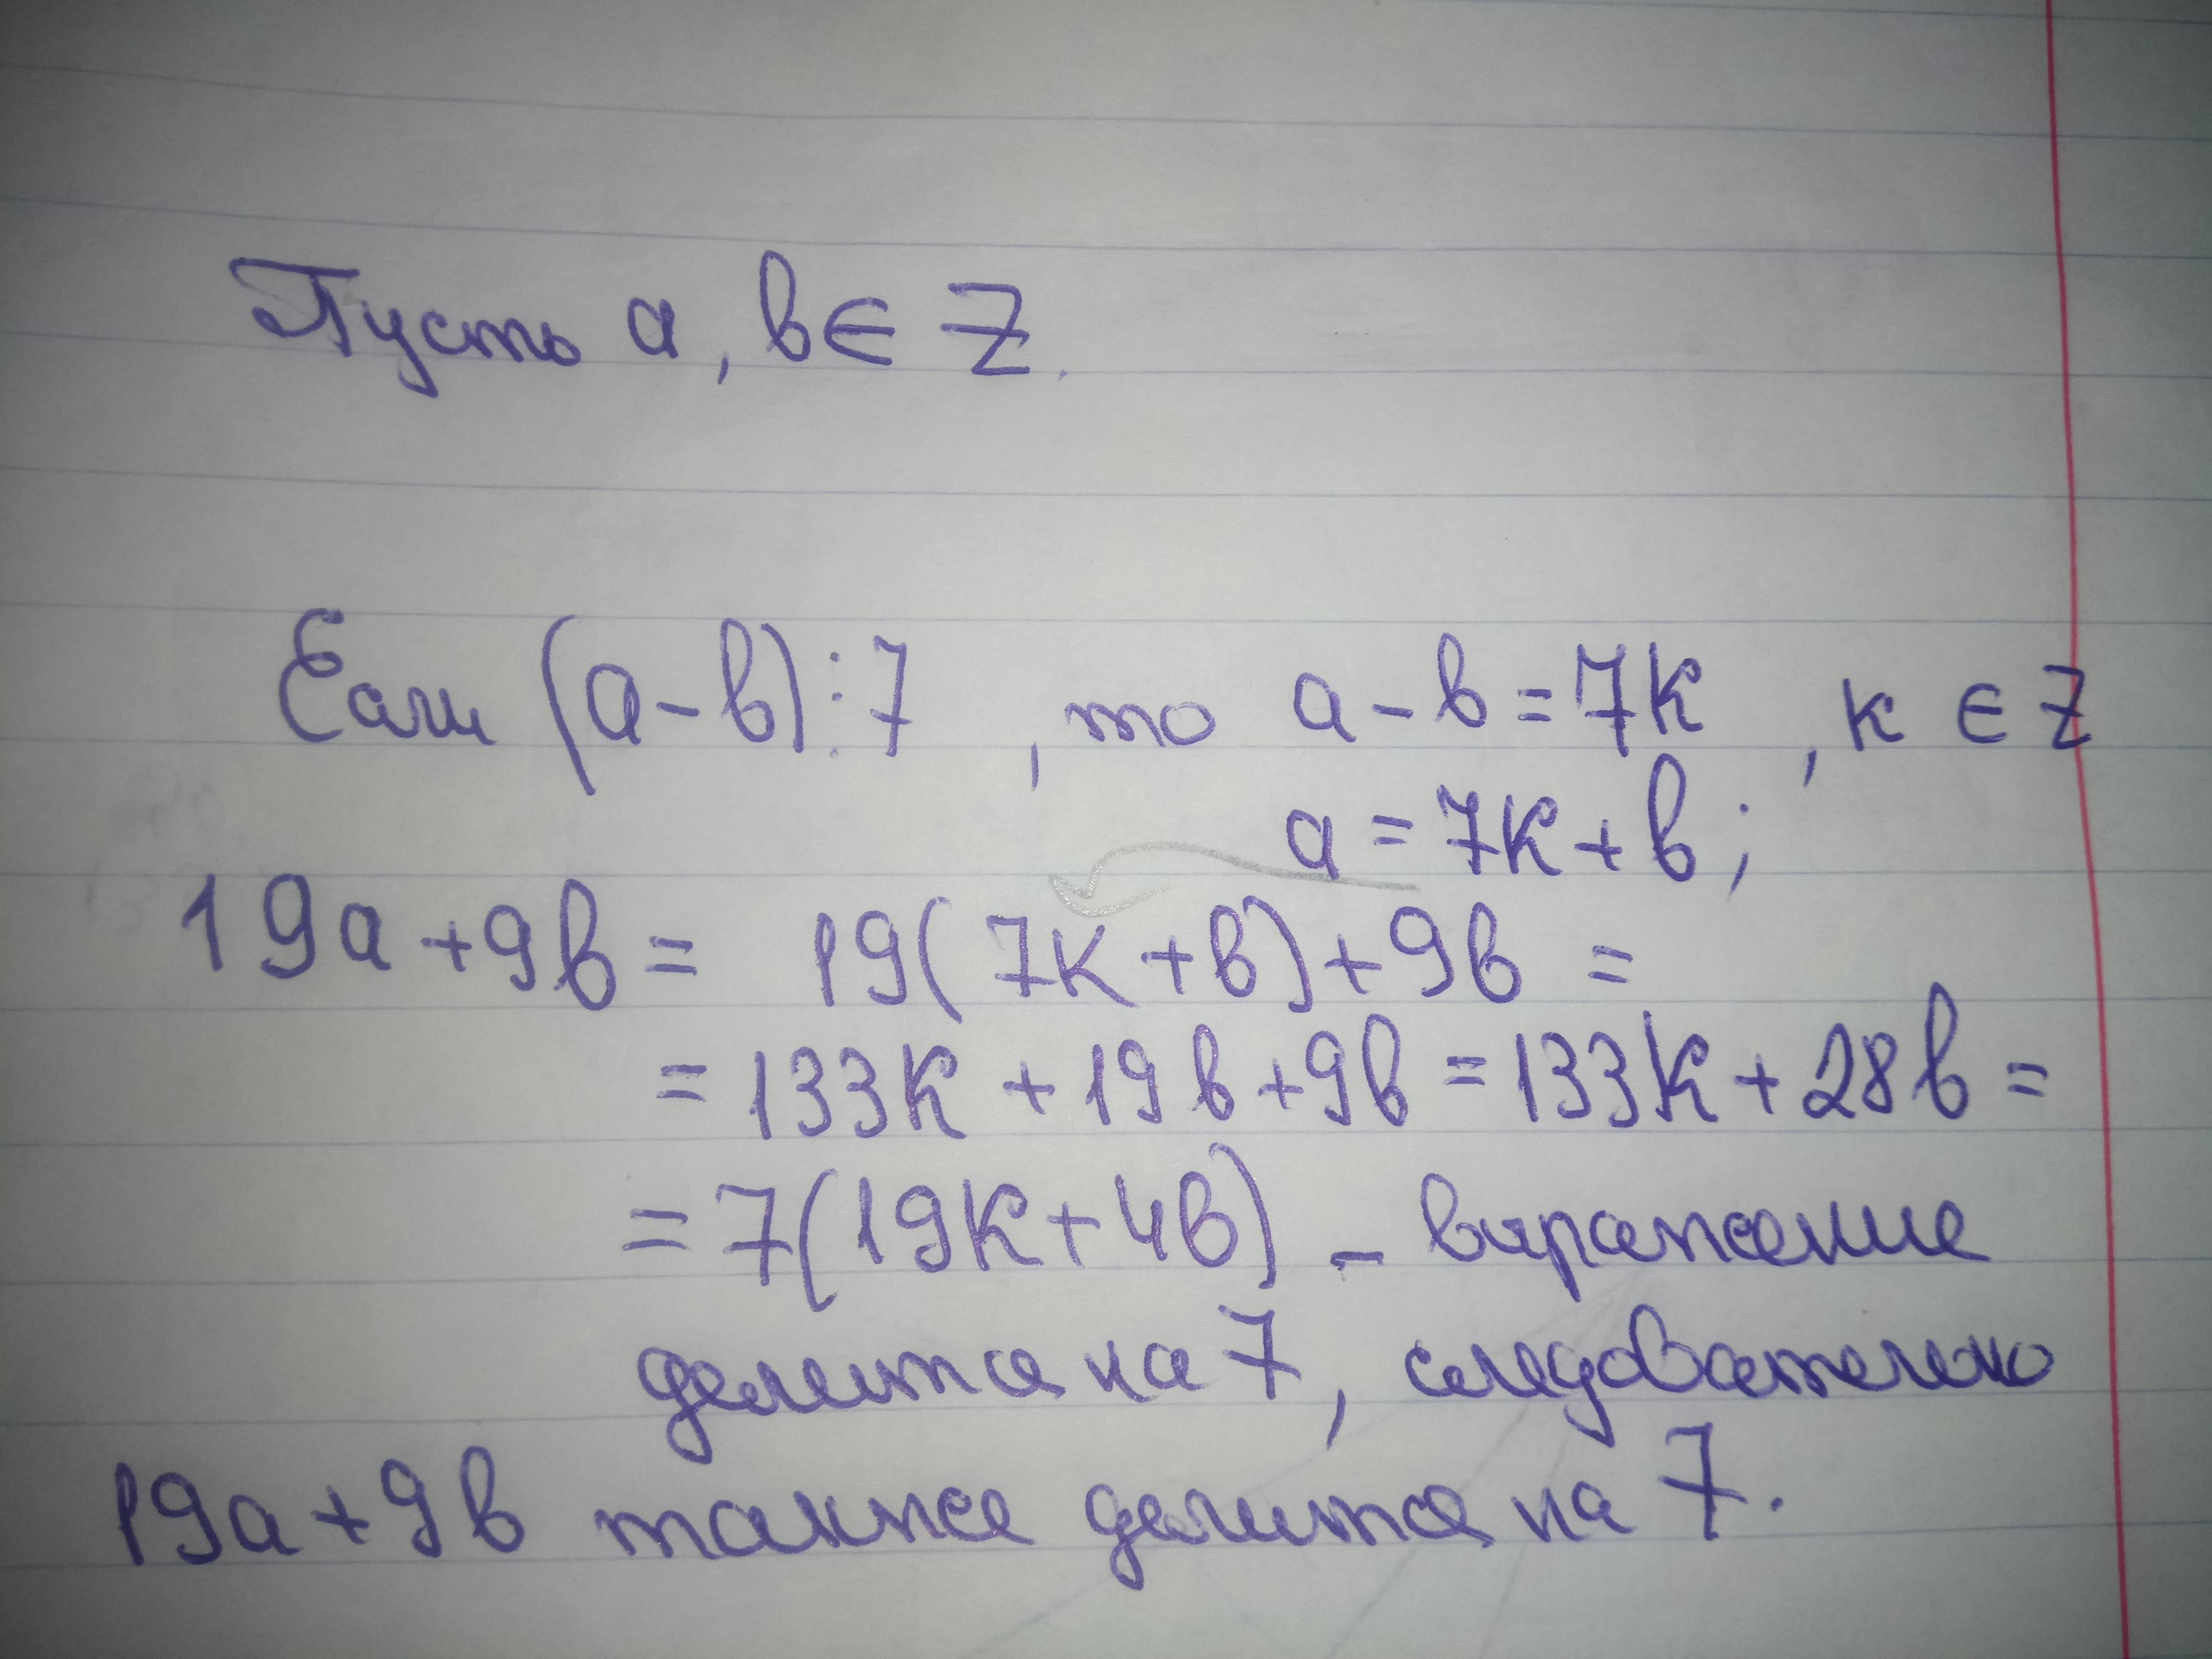 Пусть a, b ∈ Z.
Если (a-b)⋮7, то a-b=7k, k ∈ Z
a = 7k+b;
19a+9b = 19(7k+b)+9b =
= 133k + 19b + 9b = 133k + 28b =
= 7(19k+4b) - выражение
делится на 7, следовательно
19a+9b также делится на 7.